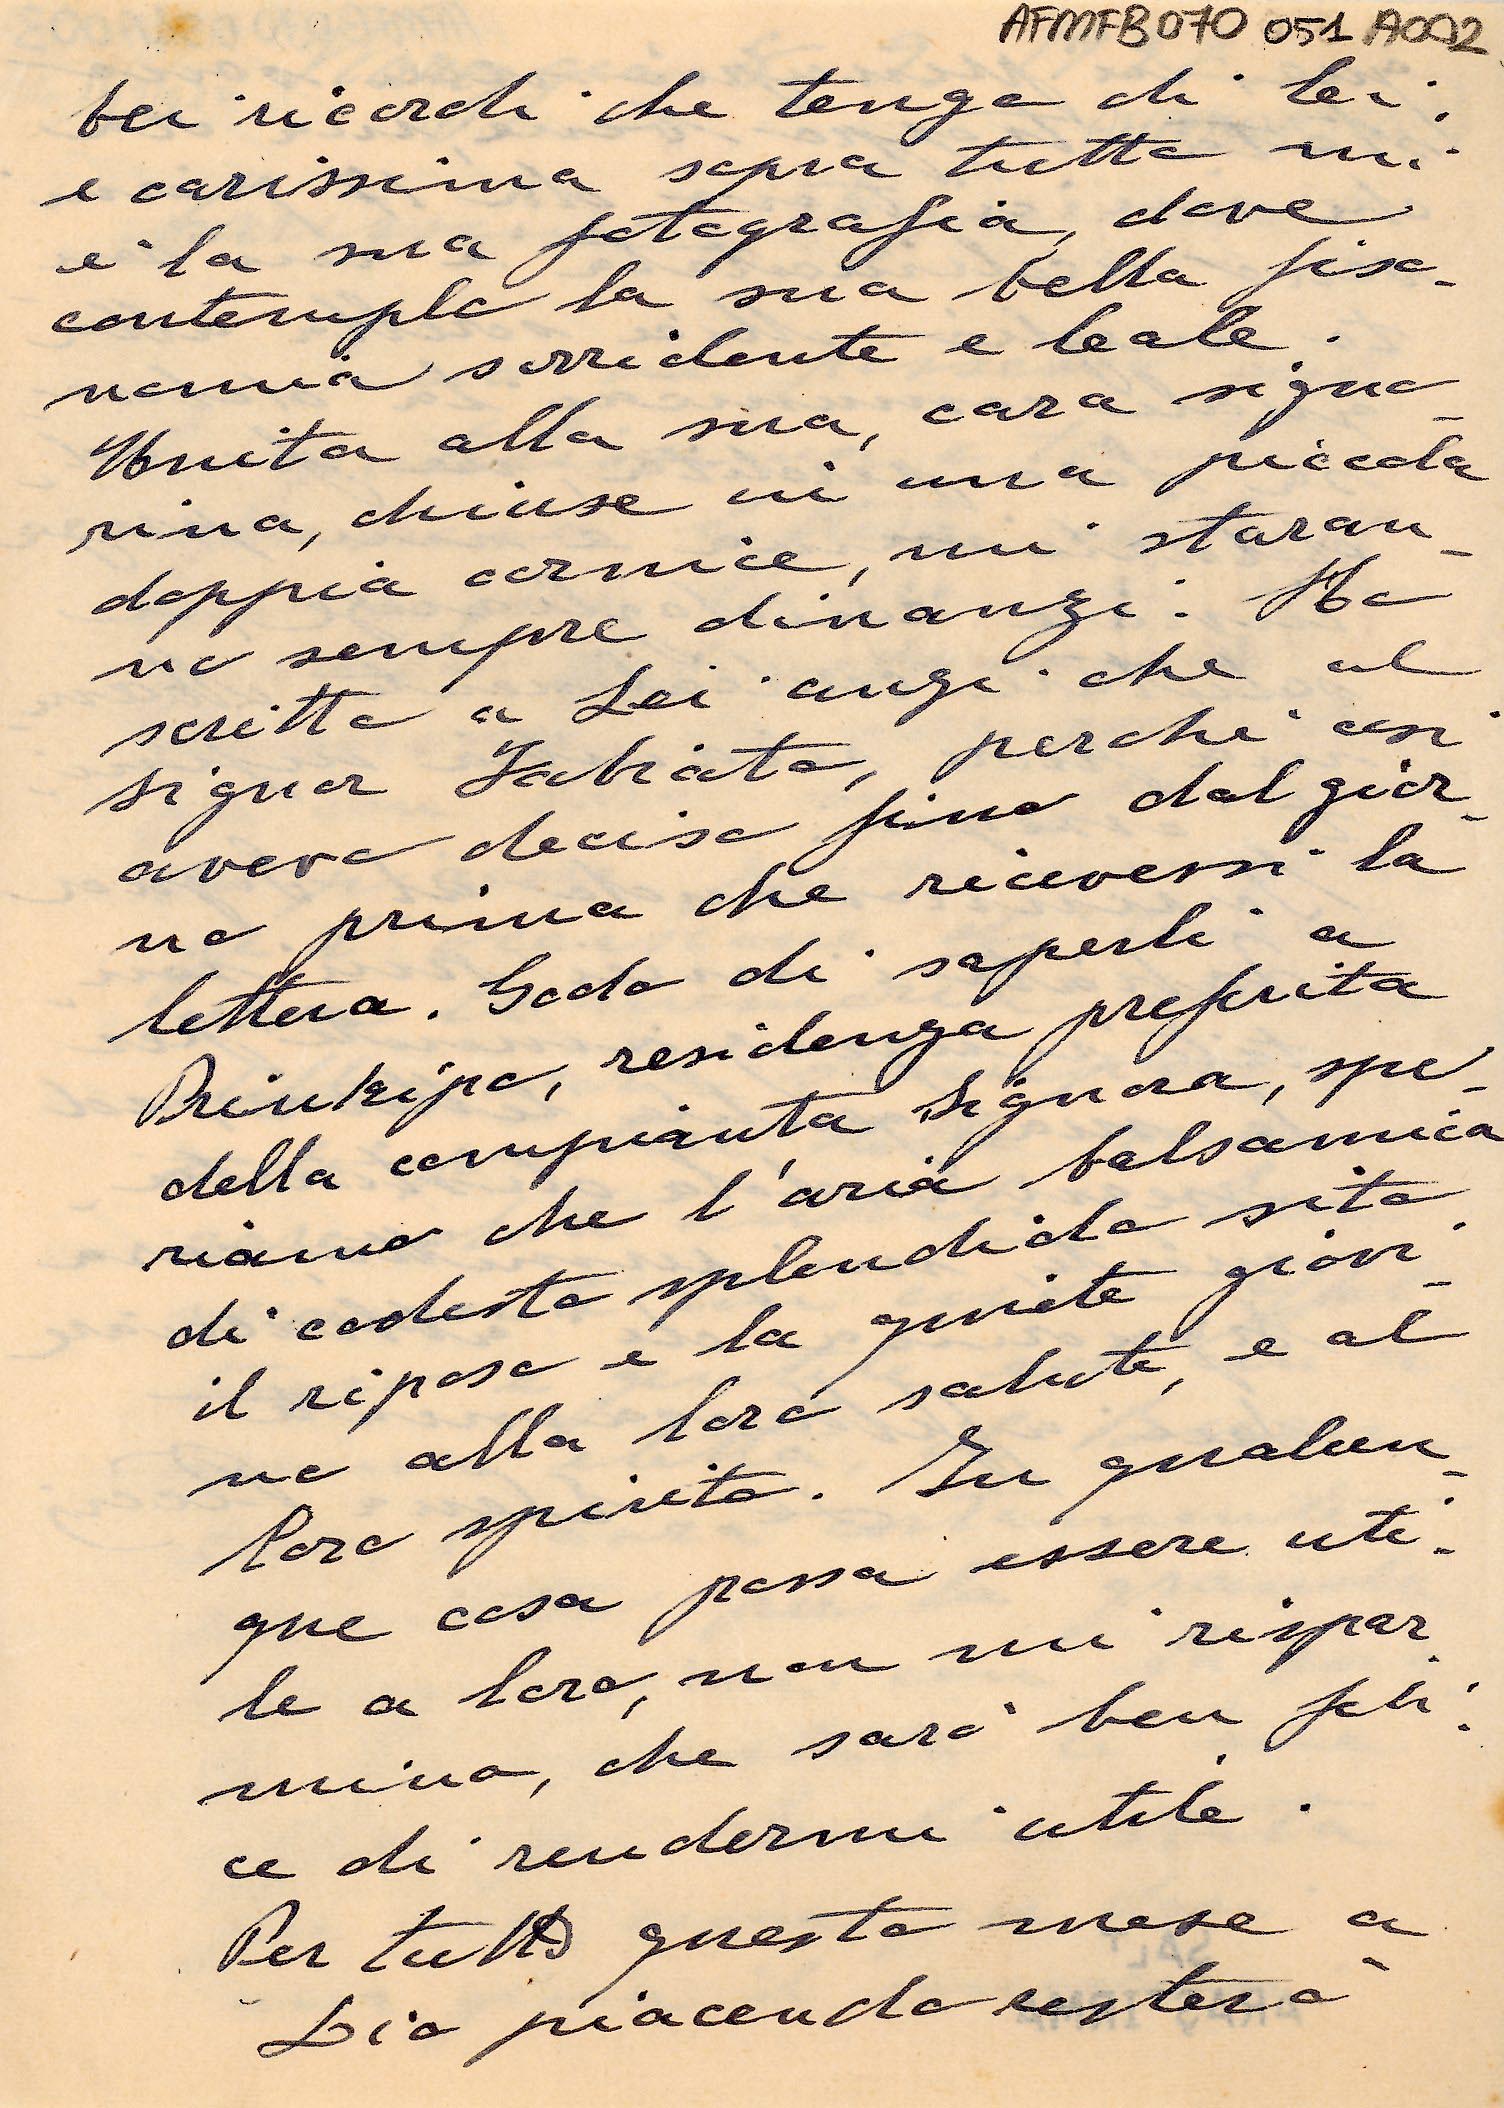 AFMFB070 051 A002
bei ricordi che tengo di lei,
e carissima sopra tutto mi
è la sua fotografia, dove
contemplo la sua bella fiso-
nomia sorridente e leale.
Unita alla sua, cara signo-
rina, chiuse in una piccola
doppia cornice, mi staran-
no sempre dinanzi. Ho
scritto a Lei anzi che al
signor Fabiato, perchè così
avevo deciso fino dal gior-
no prima che ricevessi la
lettera. Godo di saperli a
Prinkipo, residenza preferita
della compianta Signora, spe-
riamo che l'aria balsamica
di codesto splendido sito
il riposo e la quiete giovi-
no alla loro salute, e al
loro spirito. In qualun-
que cosa possa essere uti-
le a loro, non mi rispar
mino, che sarò ben feli-
ce di rendermi utile.
Per tutto questo mese a
Dio piacendo resterò